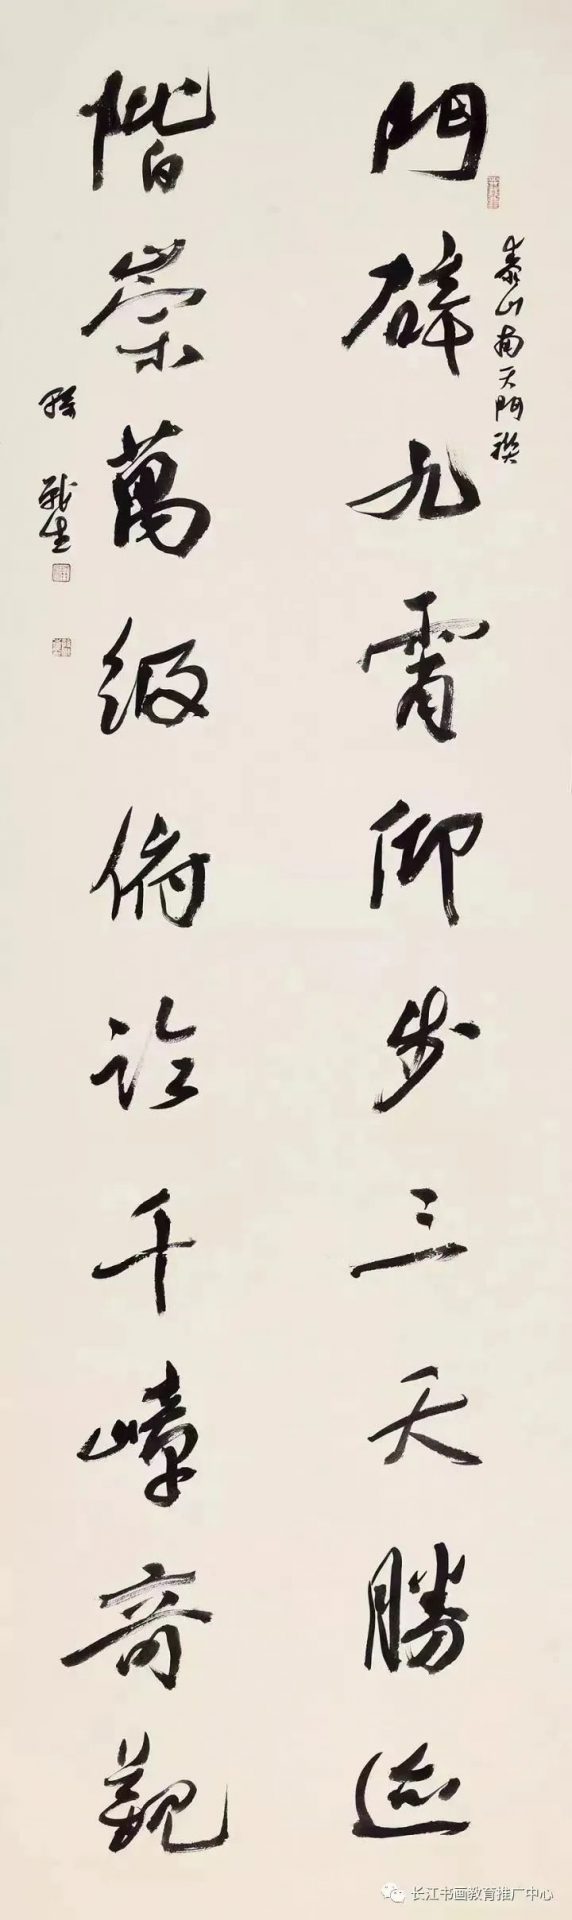 門辟九霄仰步三天勝迹
階崇萬級俯臨千嶂奇觀
泰山南天門聯
孫 戰生
长江书画教育推广中心